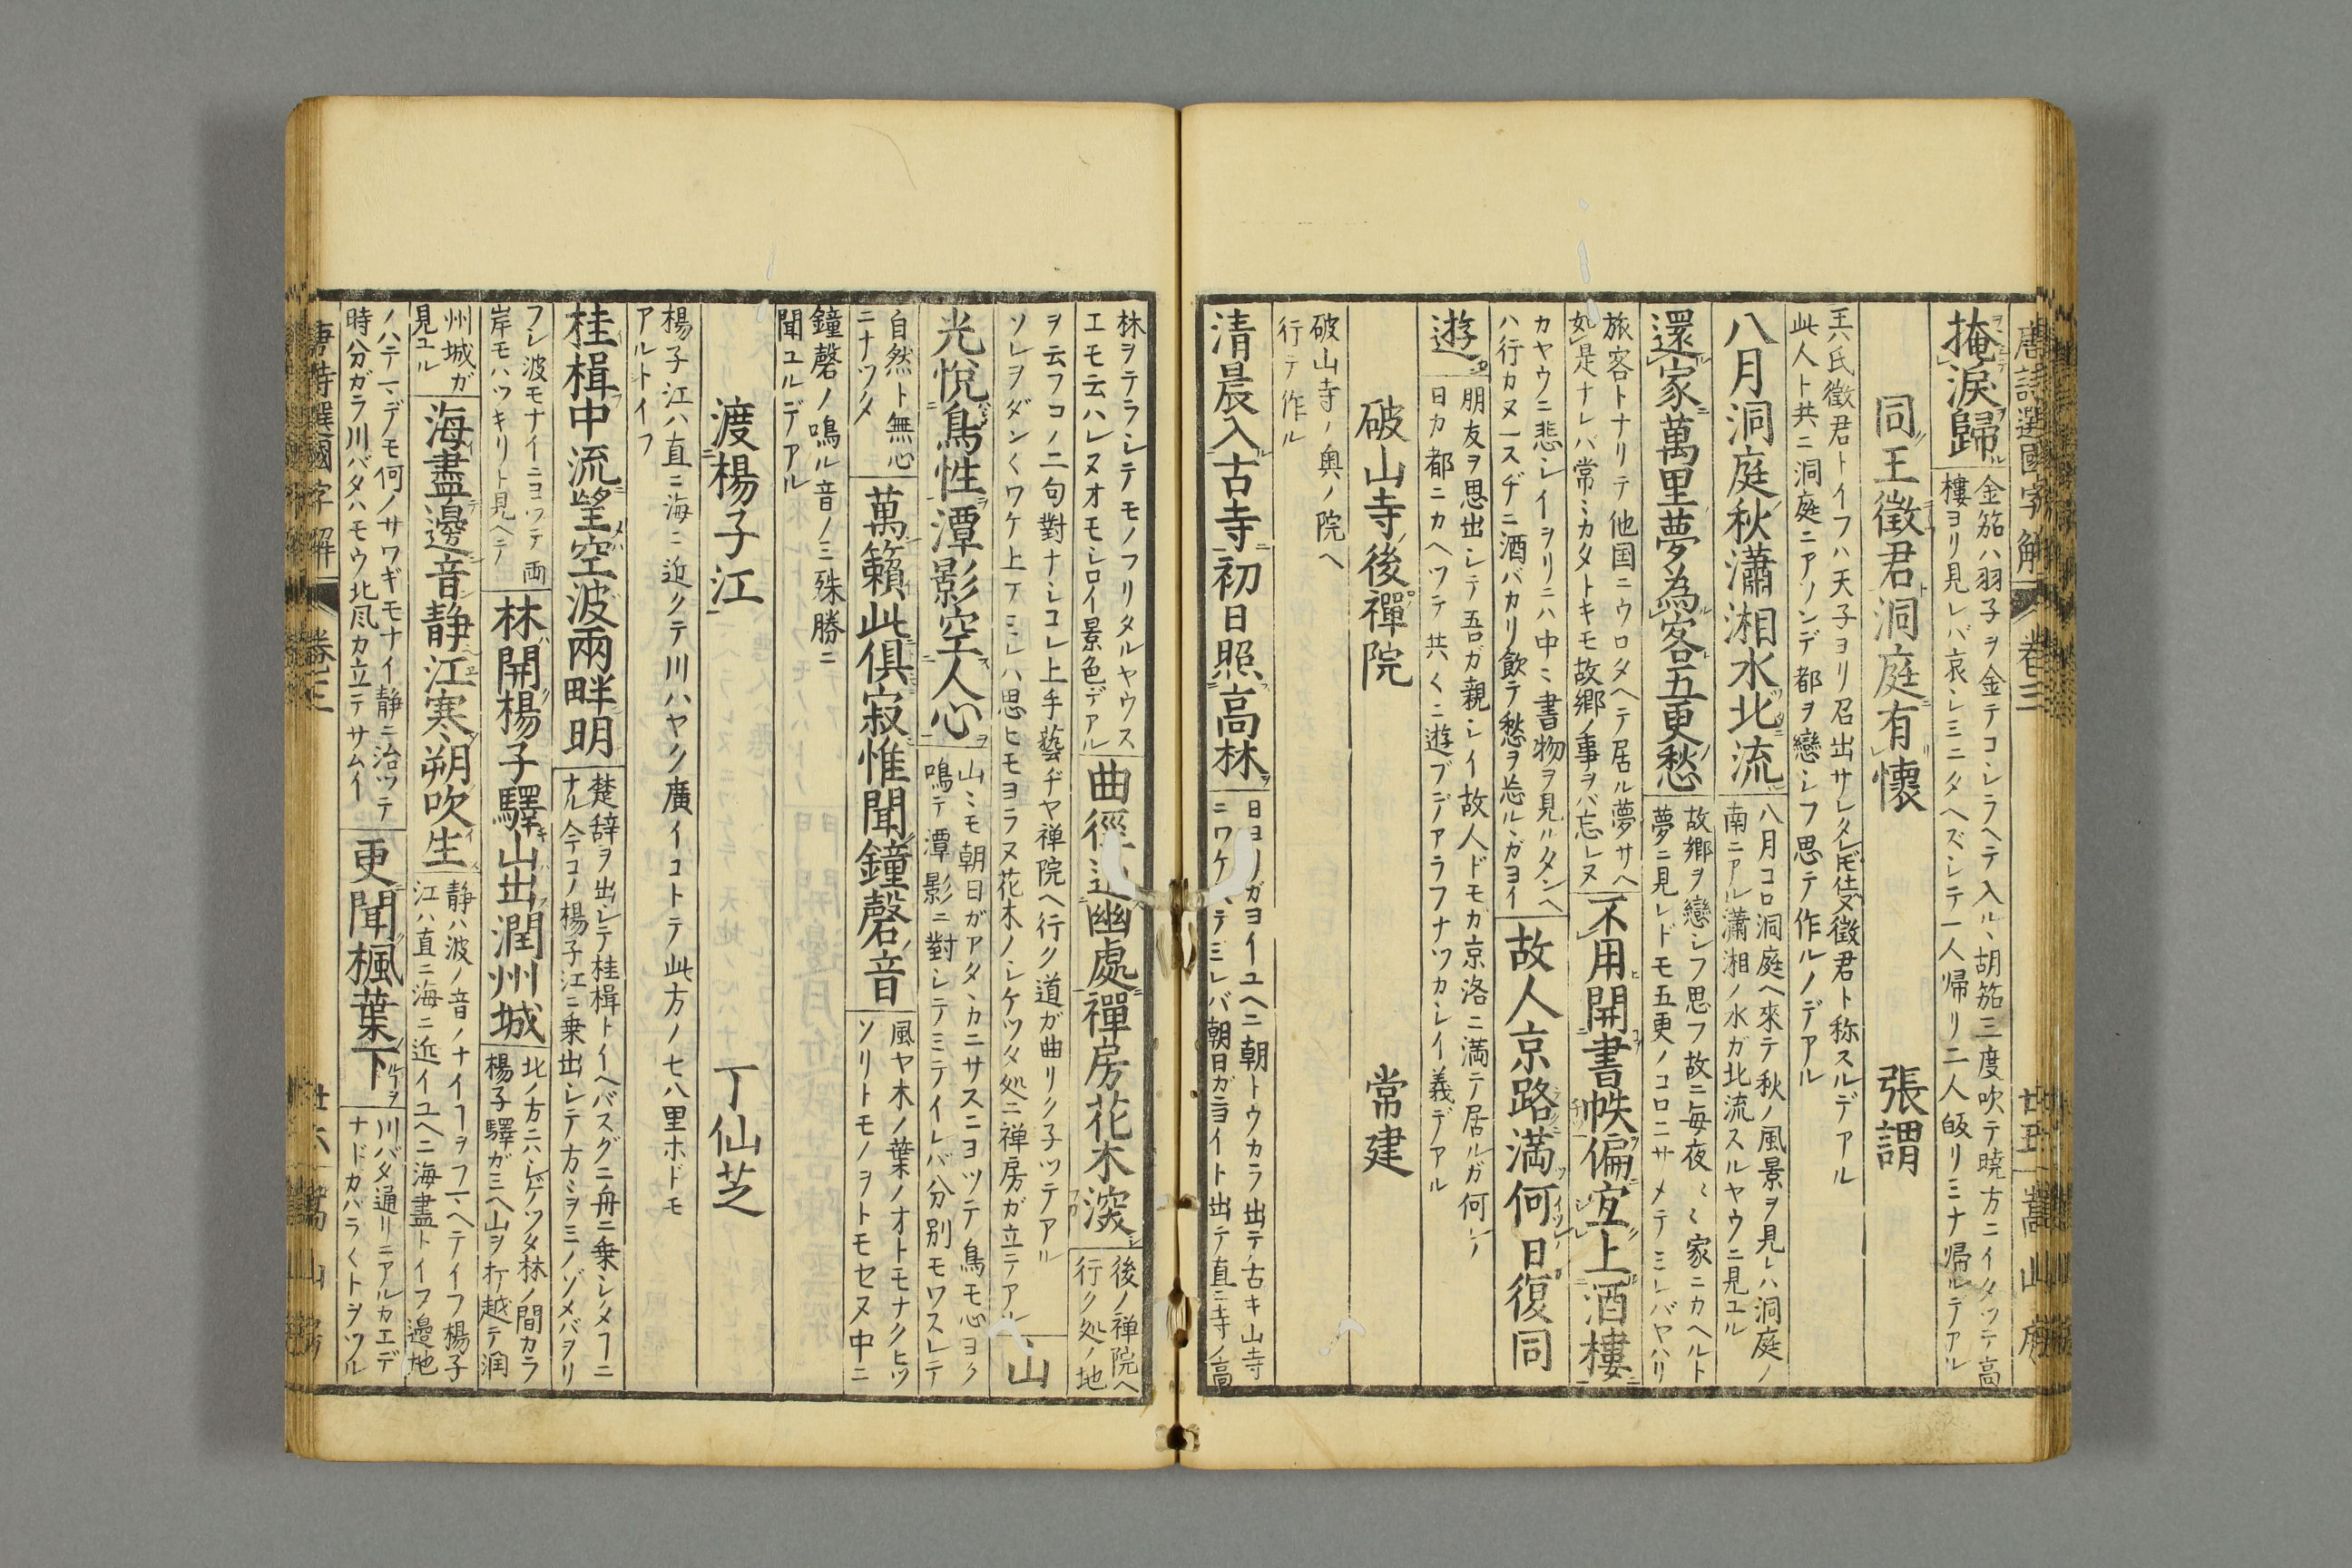 唐詩選國字解 卷三 嵩山房
掩涙歸
金笳ハ羽子ヲ金テコシラヘテ入ル、胡笳三度吹テ暁方ニイタツテ高
樓ヨリ見レバ哀シミニタヘズシテ一人帰リ二人皈リミナ帰ルデアル
同王徵君洞庭有懷 張謂
王ハ氏徵君トイフハ天子ヨリ召出サレタレドモ仕ヘヌヲ徵君ト称スルデアル
此人ト共ニ洞庭ニアソンデ都ヲ戀シフ思テ作ルノデアル
八月洞庭秋瀟湘水北流
八月コロ洞庭ヘ來テ秋ノ風景ヲ見レハ洞庭ノ
南ニアル瀟湘ノ水ガ北流スルヤウニ見ユル
還家萬里夢為客五更愁
故郷ヲ戀シフ思フ故ニ毎夜〻家ニカヘルト
夢ニ見レドモ五更ノコロニサメテミレバヤハリ
旅客トナリテ他国ニウロタヘテ居ル夢サヘ
如是ナレバ常ミカタトキモ故郷ノ事ヲバ忘レヌ
不用開書帙偏宜上酒樓
カヤウニ悲シイヲリニハ中〻書物ヲ見ルタンヘ
ハ行カヌ一スヂニ酒バカリ飲テ愁ヲ忘ル、ガヨイ
故人京路満何日復同
遊
朋友ヲ思出シテ吾ガ親シイ故人ドモガ京洛ニ満テ居ルガ何レノ
日カ都ニカヘツテ共〱ニ遊ブデアラフナツカシイ義デアル
破山寺後禪院 常建
破山寺ノ奥ノ院ヘ
行テ作ル
清晨入古寺初日照高林
日ヨリガヨイユヘニ朝トウカラ出テ古キ山寺
ニワケ入テミレバ朝日ガヨイト出テ直ニ寺ノ高
林ヲテラシテモノフリタルヤウス
エモ云ハレヌオモシロイ景色デアル
曲徑通幽處禪房花木深
後ノ禅院ヘ
行ク処ノ地
ヲ云フコノ二句對ナシコレ上手藝ヂヤ禅院ヘ行ク道ガ曲リクネツテアル
ソレヲダン〱ワケ上テミレハ思ヒモヨラヌ花木ノシケツタ処ニ禅房ガ立テアル
山
光悅鳥性潭影空人心
山ミモ朝日ガアタ、カニサスニヨツテ鳥モ心ヨク
鳴テ潭影ニ對シテミテイレバ分別モワスレテ
自然ト無心
ニナツタ
萬籟此俱寂惟聞鐘磬音
風ヤ木ノ葉ノオトモナクヒツ
ソリトモノヲトモセヌ中ニ
鐘磬ノ鳴ル音ノミ殊勝ニ
聞ユルデアル
渡楊子江 丁仙芝
楊子江ハ直ニ海ニ近クテ川ハヤク廣イコトテ此方ノ七八里ホドモ
アルトイフ
桂楫中流望空波兩畔明
楚辞ヲ出シテ桂楫トイヘバスグニ舟ニ乗シタヿニ
ナル今コノ楊子江ニ乗出シテ方〻ヲミノゾメバヲリ
フシ波モナイニヨツテ両
岸モハツキリト見ヘテ
林開楊子驛山出潤州城
北ノ方ニハシゲツタ林ノ間カラ
楊子驛ガミヘ山ヲ打越テ潤
州城ガ
見ユル
海盡邊音静江寒朔吹生
静ハ波ノ音ノナイヿヲフマヘテイフ楊子
江ハ直ニ海ニ近イユヘニ海盡トイフ邊地
ノハテマデモ何ノサワギモナイ静ニ治ツテ
時分ガラ川バタハモウ北風カ立テサムイ
更聞楓葉下
川バタ通リニアルカエデ
ナドカハラ〱トヲツル
唐詩選國字解 卷三 嵩山房